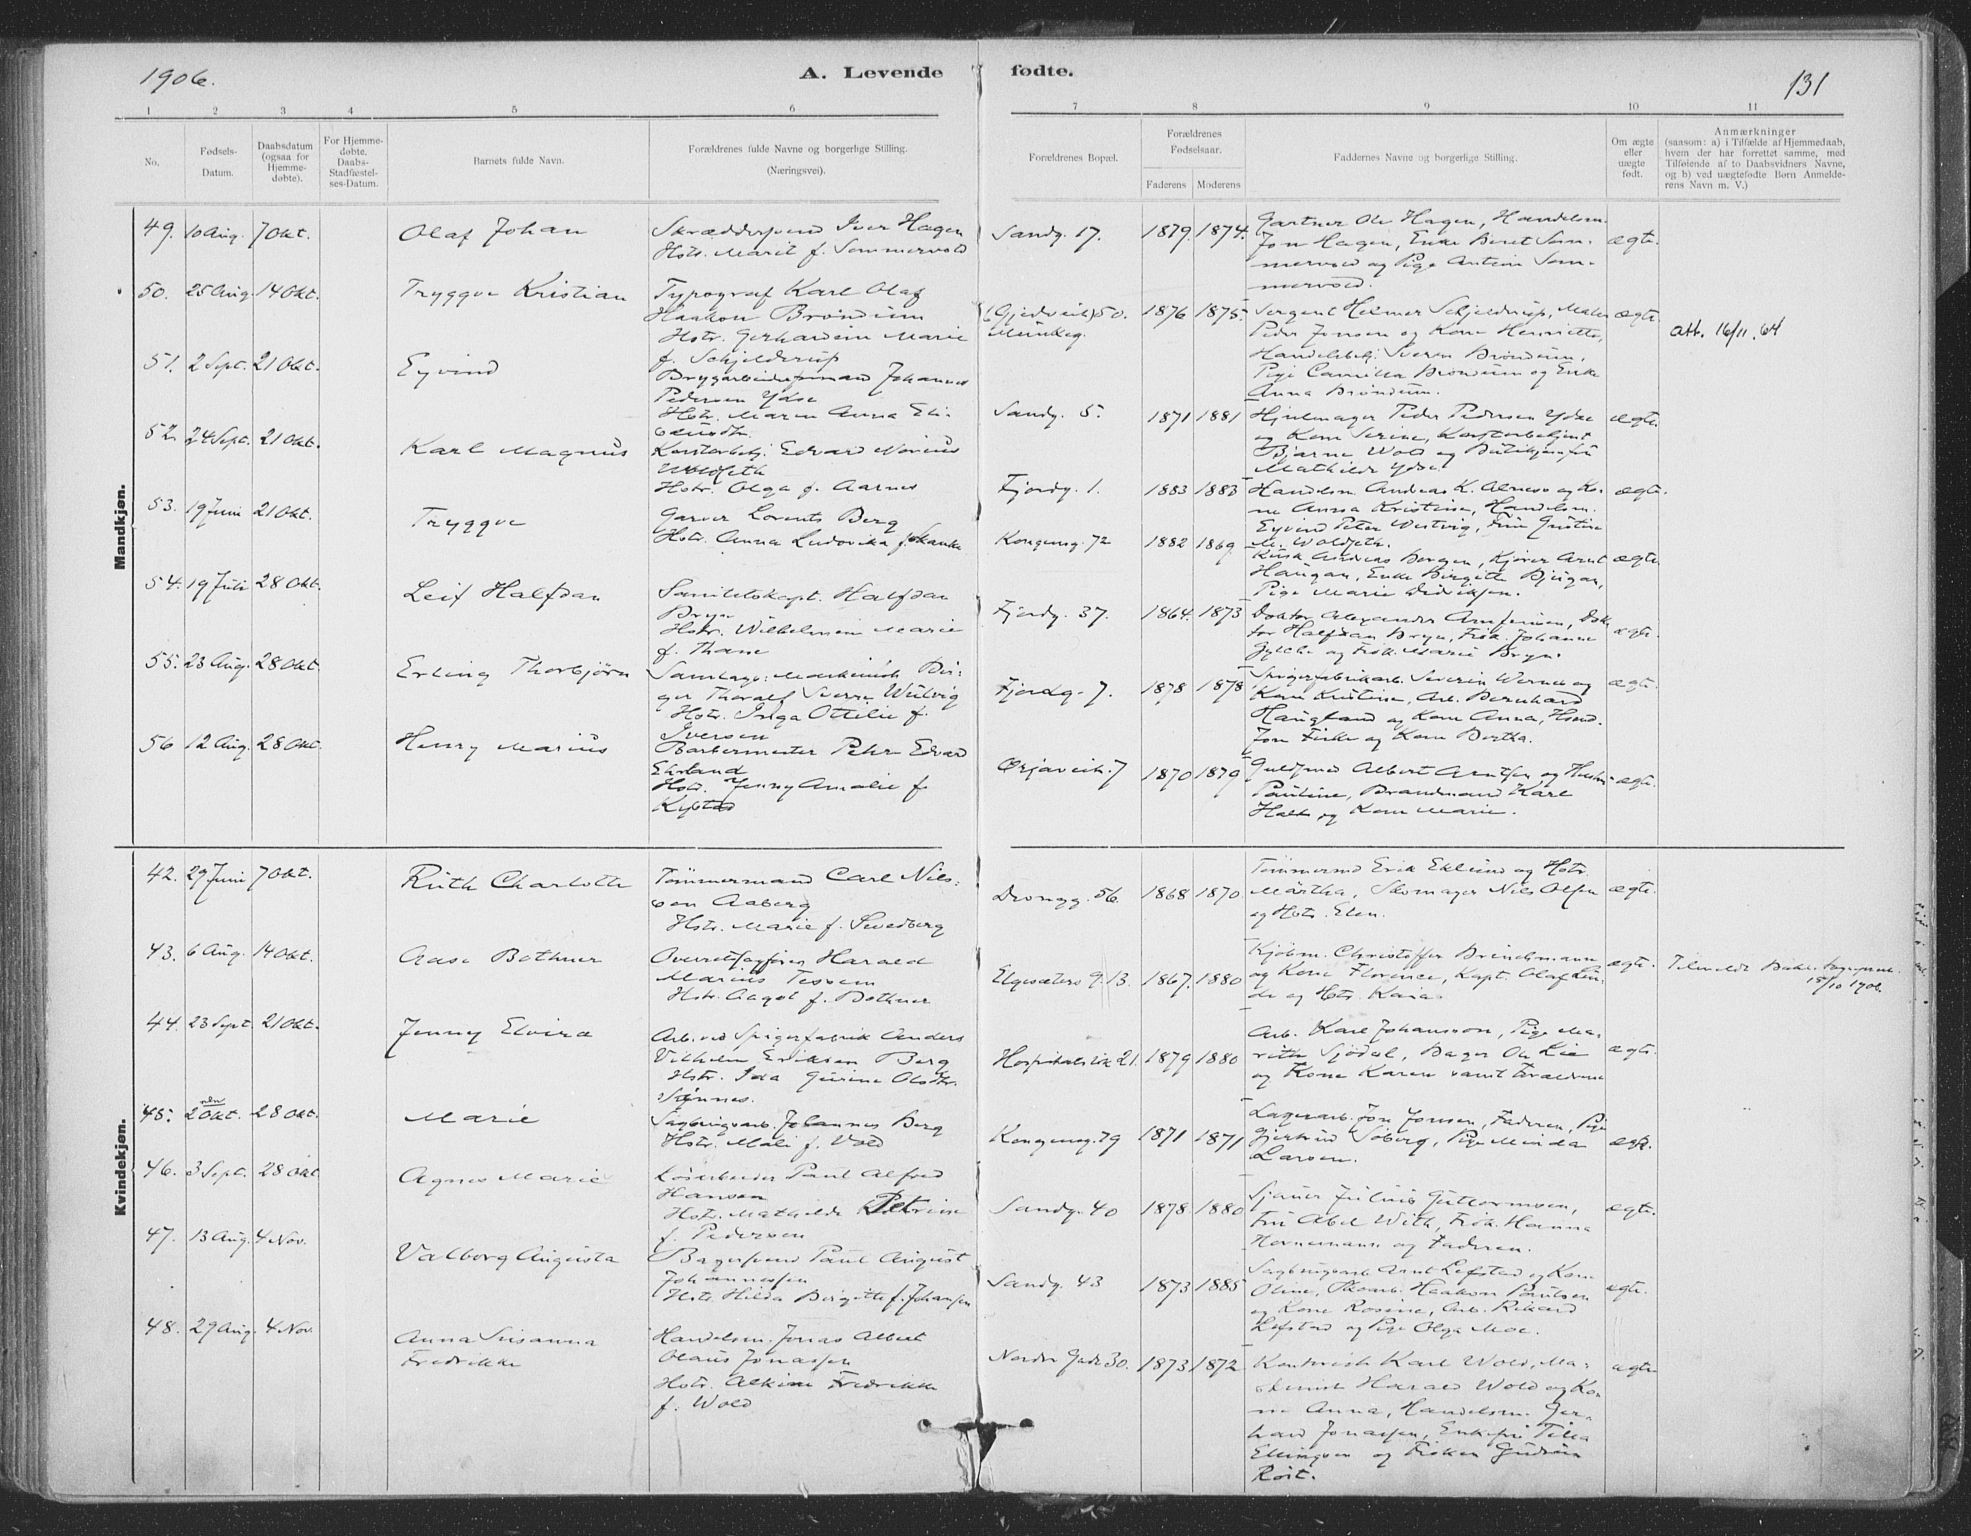 1906.
A. Levende
fødte.
131
1 2 3 4 5 6 7 8 9 10 11
No.
Fødsels-
Datum.
Daabsdatum
(ogsaa for
Hjemme-
døbte).
For Hjemme-
døbte.
Daabs-
Stadfæstel-
ses-Datum.
Barnets fulde Navn.
Forældrenes fulde Navne og borgerlige Stilling.
(Næringsvei).
Forældrenes Bopæl.
Forældrenes
Fødselsaar.
Faderens Moderens
Faddernes Navne og borgerlige Stilling.
Om ægte
eller
uægte
født.
Anmærkninger
(saasom: a) i Tilfælde af Hjemmedaab,
hvem der har forrettet samme, med
Tilføiende af to Daabsvidners Navne,
og b) ved uægtefødte Børn Anmelde-
rens Navn m. V.)
Mandkjøn.
49. 10 Aug. 7 Okt. Olaf Johan
Skræddersvend Iver Hagen
Hstr. Marit f. Sommervold
Sandg. 17. 1879. 1874.
Gartner Ole Hagen, Handelsm.
Jon Hagen, Enke Beret Som-
mervold og Pige Antine Som-
mervold.
ægte.
50. 25 Aug. 14 Okt. Tryggve Kristian
Typograf Karl Olaf
Haakon Bröndum
Hstr. Gerhardine Marie
f. Schjelderup
50. 1876 1875.
Sergent Helmer Schjelderup, Maler
Peder Jonsen og Kone Henriette,
Handelsbetj. Sverre Bröndum,
Pige Camilla Bröndum og Enke
Anna Bröndum.
ægte.
att. 16/11. 64
51. 2 Sept. 21 Okt. Eyvind
Johannes
Pedersen Ydse
Hstr. Maren Anna Eli-
Sandg. 5. 1871 1881
Hjulmager Peder Pedersen Ydse
og Kone Serine, Kontorbetjent
Bjarne Wold og
Mathilde Ydse.
ægte.
52. 24 Sept. 21 Okt. Karl Magnus
Kontorbetj. Edvard Norius
Woldseth
Hstr. Olga f. Aarnes
Fjordg. 1. 1883 1883
Handelsm. Andreas K. Alnæs og Ko-
ne Anna Kristine, Handelsm.
Eyvind Peter Westvig, Frue
M. Woldseth.
ægte.
53. 19 Juni 21 Okt. Tryggve
Garver Lorents Berg
Hstr. Anna Ludovika f. Skanke
Kongensg. 72 1882 1869
Kusk Andreas Bergen, Kjører Arnt
Haugan, Enke Birgitte
Pige Marie Didriksen.
ægte.
54. 19 Juli 28 Okt. Leif Halfdan
Sanitetskapt. Halfdan
Bryn
Hstr. Wilhelmine Marie
f. Thane
Fjordg. 37. 1864. 1873
Doktor Alexander Dok-
tor Halfdan Bryn, Frøk. Johanne
og Frøk. Marie Bryn.
ægte.
55. 23 Aug. 28 Okt. Erling Thorbjörn
Bir-
ger Thoralf Sverre Wülvig
Hstr. Inga Ottilie f.
Iversen
Fjordg. 7. 1878. 1878
Spigerfabrikarb. Severin Werner og
Kone Kristine, Arb. Bernhard
Haugland og Kone Anna,
og Kone Bertha.
ægte.
56 12 Aug. 28 Okt. Henry Marius
Barbermester Peter Edvard
Ekrland
Hstr. Jenny Amalie f.
Kystad
Ørjaveit. 7 1870 1879
Guldsmed Albert Arntsen og Hustru
Pauline, Brandmand Karl
Holt og Kone Marie.
ægte.
Kvindekjøn.
42. 29 Juni 7 Okt. Ruth Charlotte
Tömmermand Carl Nils-
son Aaberg
Hstr. Marie f. Svedberg
Drongg. 56. 1868 1870
Tömmermd Erik Eklund og Hstr.
Märtha, Skomager Nils Olsen
og Hstr. Elen.
ægte.
43. 6 Aug. 14 Okt. Aase Bothner
Overretssagfører Harald
Marius Tessem
Hstr. Aagot f. Bothner
Elgesæters g. 13. 1867. 1880
Kjöbm. Christoffer Brinchmann
og Kone Florence, Kapt. Olaf Lin-
de og Hstr. Kaia.
ægte.
Tilmeldt Bakke Sogneprest
15/10 1906.
44. 23 Sept. 21 Okt. Jenny Elvira
Arb. ved Spigerfabrik Anders
Vilhelm Eriksen Berg
Hstr. Ida Gurine Olsdtr.
Sönnes.
Hospitalslök. 21. 1879 1880
Arb. Karl Johansson, Pige Ma-
rith Sjödal, Bager Ole Lie
og Kone Karen samt Forældrene
ægte.
45. 2 Okt. 28 Okt. Marie
Sagbrugsarb. Johannes Berg
Hstr. Mali f. Vold
Kongensg. 79 1871 1871
Lagerarb. Jon Jonsen, Faderen, Pige
Gjertrud Soberg, Pige Minda
Larsen.
ægte.
46. 3 Sept. 28 Okt. Agnes Marie
Løsarbeider Paul Alfred
Hansen
Hstr. Mathilde Petrine
f. Pedersen
Sandg. 40 1878. 1880
Sjauer Julius Guttormsen,
Fru Abel With, Frøk. Hanna
Hornemann og Faderen.
ægte.
47. 13 Aug. 4 Nov. Valborg Augusta
Bagersvend Paul August
Johannessen
Hstr. Hilda Birgitte f. Johansen
Sandg. 43 1873 1885
Sagbrugsarb. Arnt Lefstad og Kone
Oline, Haakon Paulsen
og Kone Rosine, Arb. Rikard
Lefstad og Pige Olga Moe.
ægte.
48. 29 Aug. 4 Nov. Anna Susanna
Fredrikke
Handelsm. Jonas Albert
Olaus Jonassen
Hstr. Alkine Fredrikke
f. Wold
Nordre Gade 30. 1873 1872
Kontorist Karl Wold, Ma-
skinist Harald Wold og Ko-
ne Anna, Handelsm. Ger-
hard Jonassen, Enkefru Tilla
Ellingsen og Frøken Gudrun
Röst.
ægte